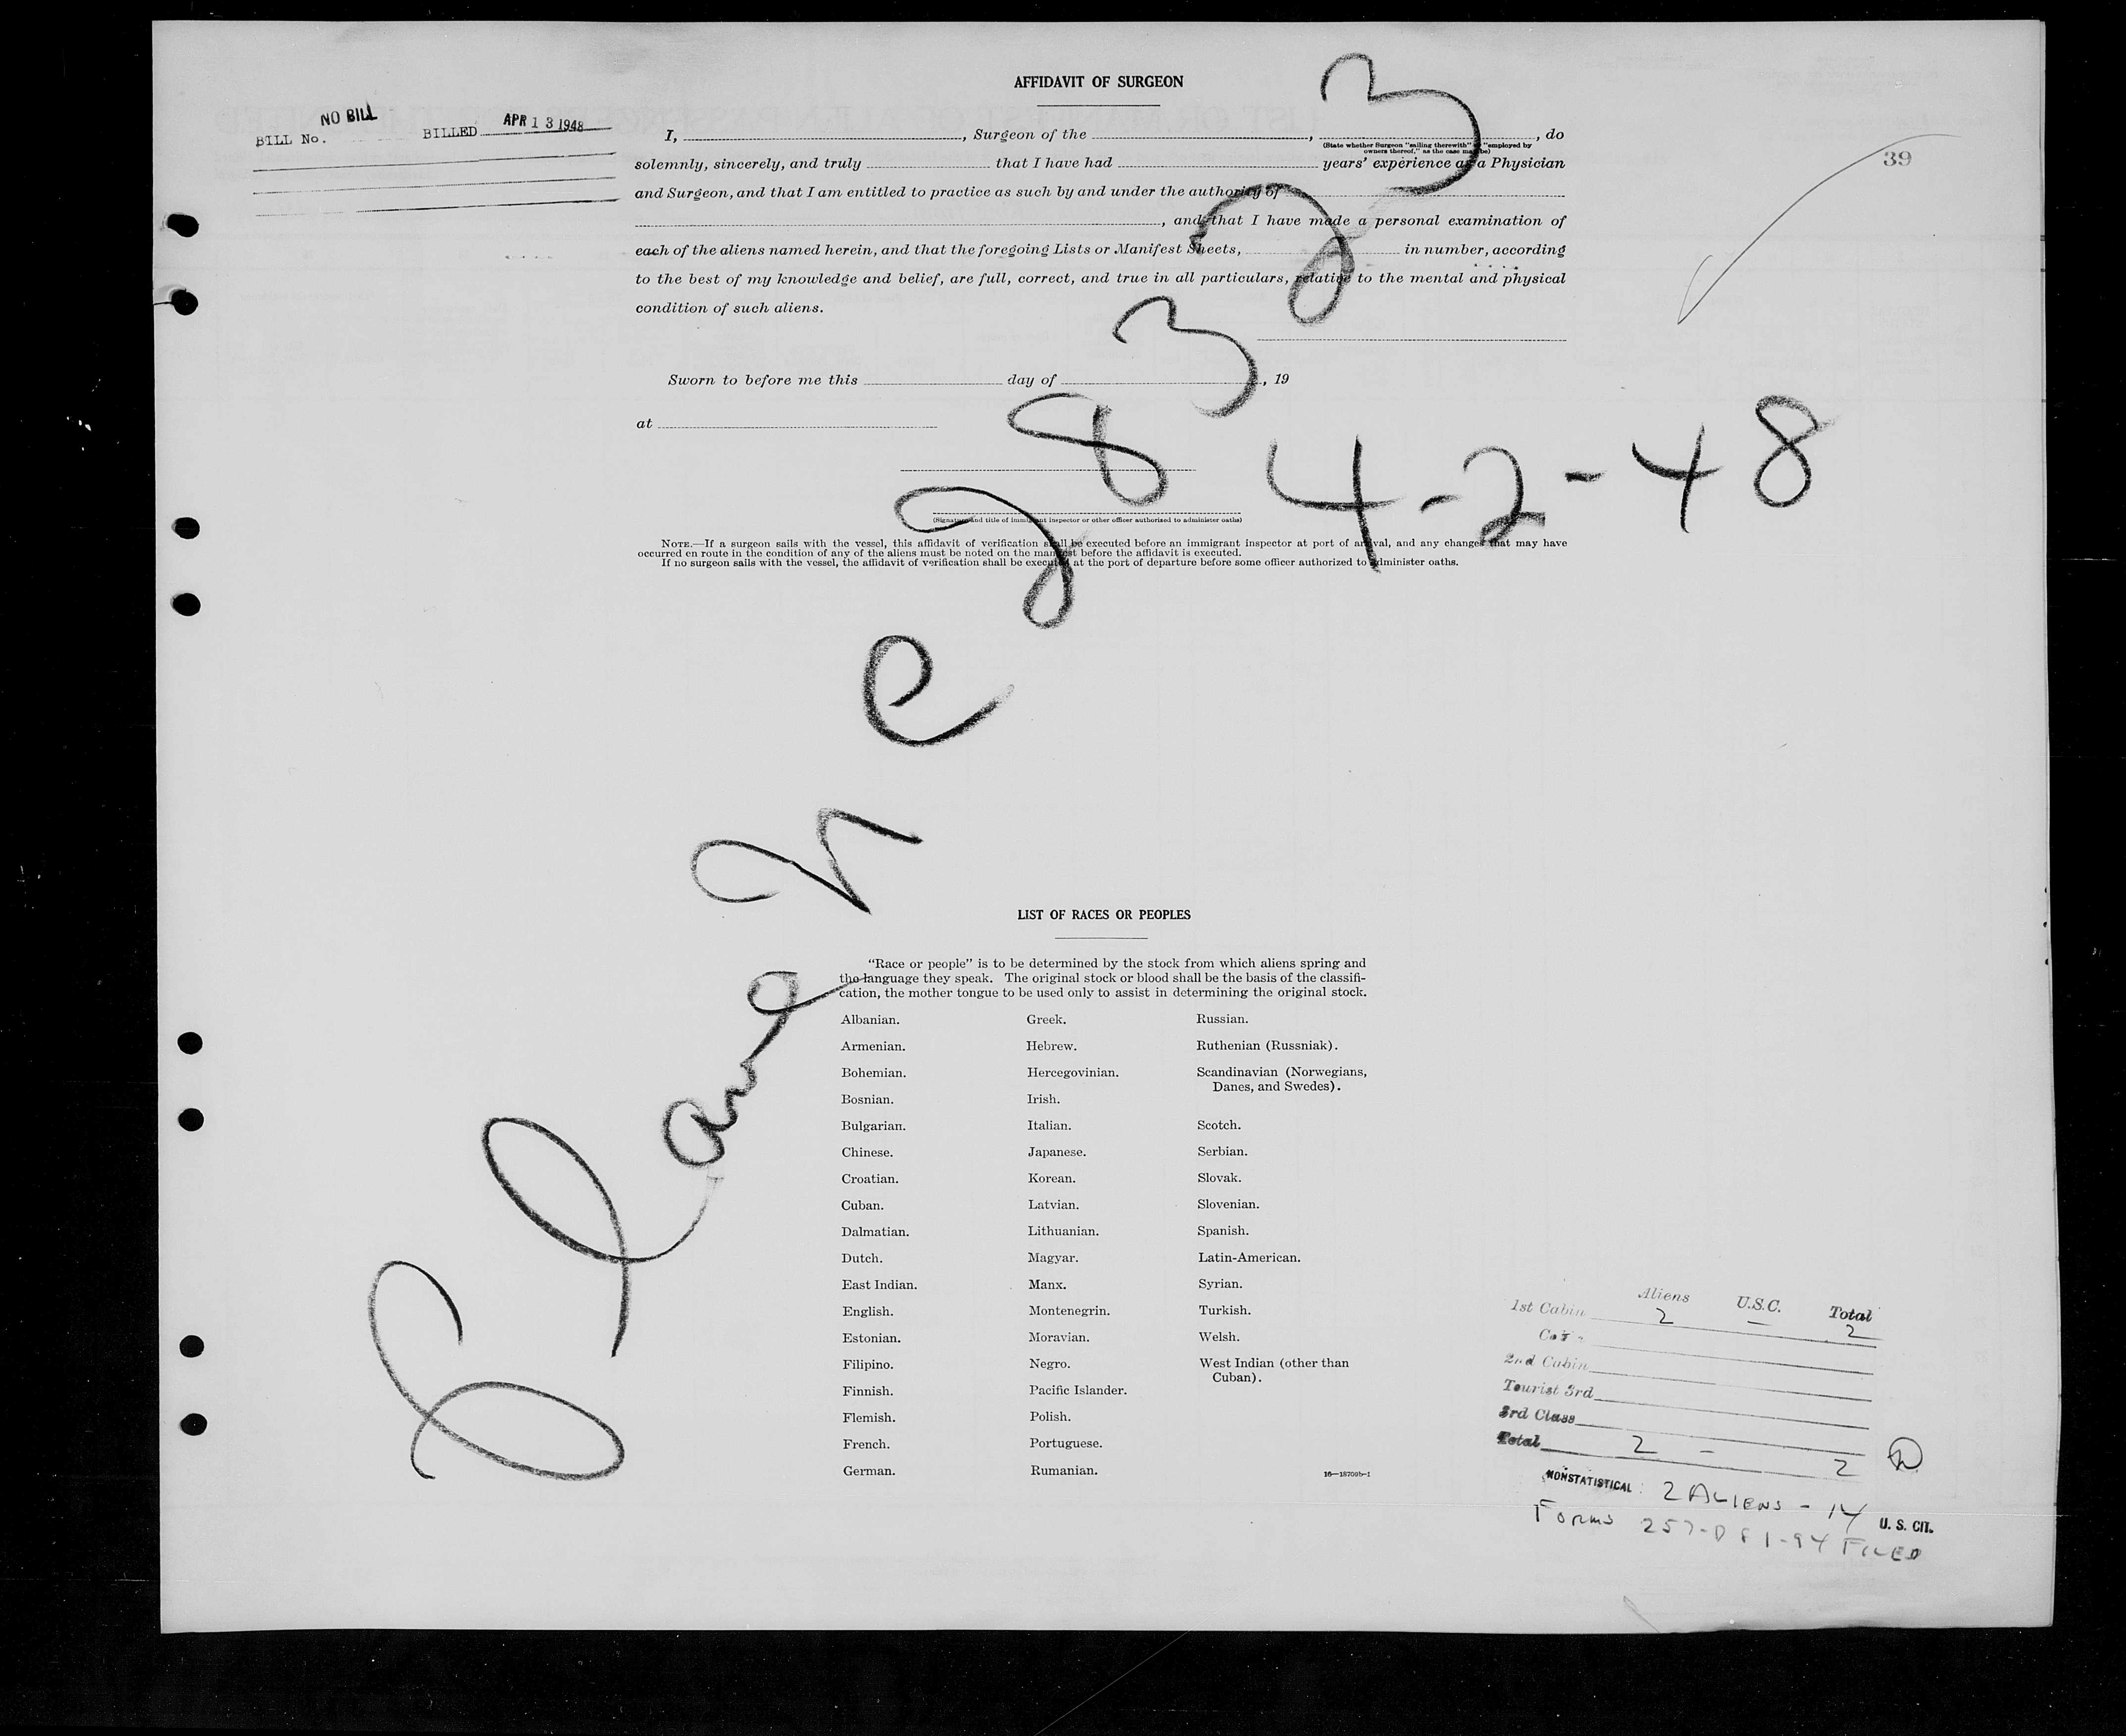 AFFIDAVIT OF SURGEON
BILL No. NO BILL BILLED APR 13 1948
I, , Surgeon of the , , do
(State whether Surgeon "sailing therewith" "employed by
owners thereof," as the case may be)
solemnly, sincerely, and truly that I have had years' experience as a Physician
39
and Surgeon, and that I am entitled to practice as such by and under the authority of
, and that I have made a personal examination of
each of the aliens named herein, and that the foregoing Lists or Manifest Sheets, in number, according
to the best of my knowledge and belief, are full, correct, and true in all particulars, relative to the mental and physical
condition of such aliens.
Sworn to before me this day of , 19
at
(Signature and title of immigrant inspector or other officer authorized to administer oaths)
NOTE.—If a surgeon sails with the vessel, this affidavit of verification shall be executed before an immigrant inspector at port of arrival, and any changes that may have
occurred en route in the condition of any of the aliens must be noted on the manifest before the affidavit is executed.
If no surgeon sails with the vessel, the affidavit of verification shall be executed at the port of departure before some officer authorized to administer oaths.
Plane NC 28323
4-2-48
LIST OF RACES OR PEOPLES
"Race or people" is to be determined by the stock from which aliens spring and
the language they speak. The original stock or blood shall be the basis of the classifi-
cation, the mother tongue to be used only to assist in determining the original stock.
Albanian.
Armenian.
Bohemian.
Bosnian.
Bulgarian.
Chinese.
Croatian.
Cuban.
Dalmatian.
Dutch.
East Indian.
English.
Estonian.
Filipino.
Finnish.
Flemish.
French.
German.
Greek.
Hebrew.
Hercegovinian.
Irish.
Italian.
Japanese.
Korean.
Latvian.
Lithuanian.
Magyar.
Manx.
Montenegrin.
Moravian.
Negro.
Pacific Islander.
Polish.
Portuguese.
Rumanian.
Russian.
Ruthenian (Russniak).
Scandinavian (Norwegians,
Danes, and Swedes).
Scotch.
Serbian.
Slovak.
Slovenian.
Spanish.
Latin-American.
Syrian.
Turkish.
Welsh.
West Indian (other than
Cuban).
16—18709b-1
Aliens U.S.C. Total
1st Cabin 2 – 2
2nd Cabin
Tourist 3rd
3rd Class
Total 2 – 2
NONSTATISTICAL: 2 ALIENS - 14 U. S. CIT.
FORMS 257-D & I-94 FILED